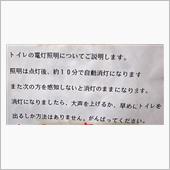 トイレの電灯照明についてご説明します。
照明は点灯後、約１０分で自動消灯になります
また次の方を感知しないと消灯のままになります。
消灯になりましたら、大声を上げるか、早めにトイレを
出るしか方法はありません。がんばってください。